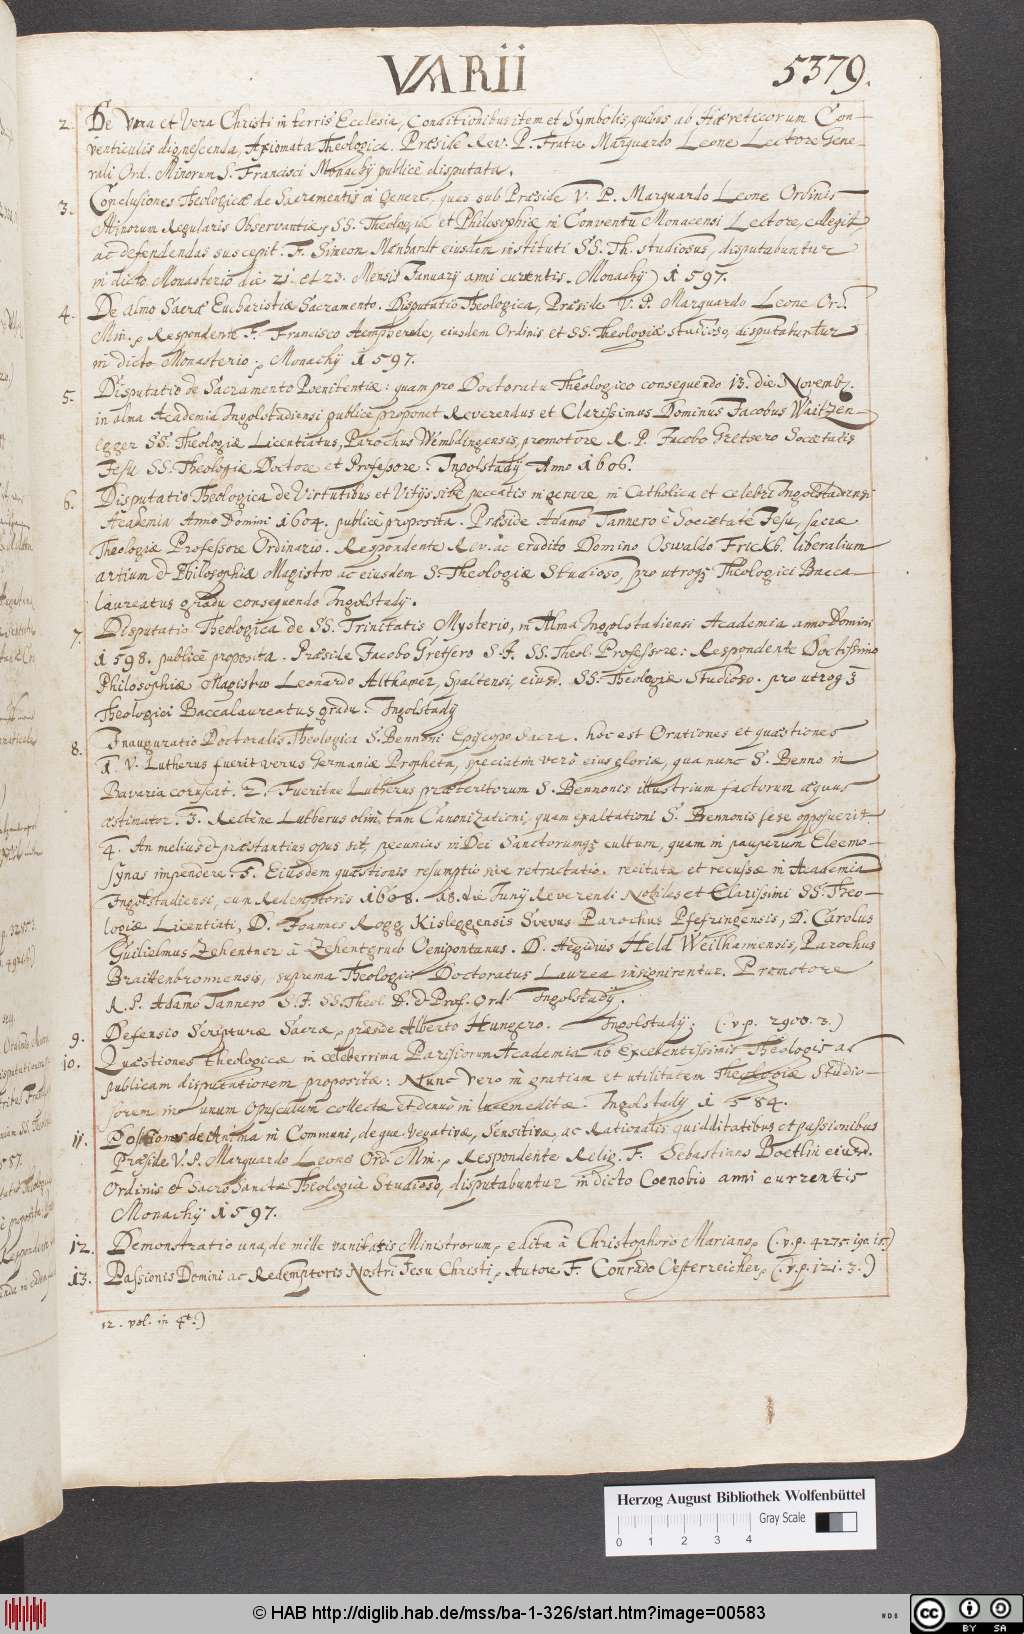 VARII
5379.
2. De Vna et Vera Christi in terris Ecclesia, Conditionibus item et Symbolis, quibus ab Hæreticorum Con-
venticulis dignoscenda, Axiomata Theologica. Præside Rev. P. Fratre Marquardo Leone Lectore Gene-
rali Ord. Minorum S. Francisci Monachÿ publicè disputata.
3. Conclusiones Theologicæ de Sacramentis in Genere, quas sub Præside V. P. Marquardo Leone Ordinis
Minorum Regularis Observantiæ, SS. Theologiæ et Philosophiæ in Conventu Monacensi Lectore, collegit,
ac defendendas suscepit. F. Simeon Manhardt eiusdem instituti SS. Th. studiosus, disputabuntur
in dicto Monasterio die 21. et 23. Mensis Januarÿ anni currentis. Monachÿ 1597.
4. De almo Sacræ Eucharistiæ Sacramento. Disputatio Theologica, Præside V. P. Marquardo Leone Ord.
Min., Respondente F. Francisco, eiusdem Ordinis et SS. Theologiæ studioso, disputabuntur
in dicto Monasterio. Monachÿ 1597.
5. Disputatio de Sacramento Poenitentiæ: quam pro Doctoratu Theologico consequendo 13. die Novemb.
in alma Academia Ingolstadiensi publicè proponet Reverendus et Clarissimus Dominus Jacobus Waitzen-
egger SS. Theologiæ Licentiatus, Parochus Wembdingensis, promotore R. P. Jacobo Gretsero Societatis
Jesu SS. Theologiæ Doctore et Professore. Ingolstadÿ Anno 1606.
6. Disputatio Theologica de Virtutibus et Vitÿs sive peccatis in genere in Catholica et celebri Ingolstadiensi
Academia Anno Domini 1604. publicè proposita. Præside Adamo Tannero è Societate Jesu, sacræ
Theologiæ Professore Ordinario. Respondente Rev. ac erudito Domino Oswaldo Frickh. liberalium
artium et Philosophiæ Magistro ac eiusdem S. Theologiæ Studioso, pro utroq3 Theologici Bacca-
laureatus gradu consequendo Ingolstadÿ.
7. Disputatio Theologica de SS. Trinitatis Mysterio, in Alma Ingolstadiensi Academia anno Domini
1598. publicè proposita. Præside Jacobo Gretsero S. J. SS. Theol. Professore: Respondente Doctissimo
Philosophiæ Magistro Leonardo Althamer, Spaltensi, eiusd. SS. Theologiæ Studioso. pro utroq3
Theologici Baccalaureatus gradu. Ingolstadÿ
8. Inauguratio Doctoralis Theologica S. Bennoni Episcopo Sacra. hoc est Orationes et quæstiones
1. V. Lutherus fuerit verus Germaniæ Propheta, speciatim verò eius gloriæ, qua nunc S. Benno in
Bavaria coruscat. 2. Fueritne Lutherus præteritorum S. Bennonis illustrium factorum æquus
æstimator. 3. Rectène Lutherus olim tam Canonizationi, quam exaltationi S. Bennonis sese opposuerit.
4. An melius et præstantius opus sit, pecunias in Dei Sanctorumq3 cultum, quam in pauperum Eleemo-
synas impendere. 5. Eiusdem quæstionis resumptio sive retractatio. recitatæ et recussæ in Academia
Ingolstadiensi, cum Redemptoris 1608. 18. die Junÿ Reverendi Nobiles et Clarissimi SS. Theo-
logiæ Licentiati, D. Joannes Rogg Kisleggensis Svevus Parochus Pfefringensis, D. Carolus
Guilielmus Zehentner à Zehentgrueb Oenipontanus. D. Aegidius Held Weilhamensis, Parochus
Braittenbronnensis, suprema Theologici Doctoratus Laurea insignirentur. Promotore
R. P. Adamo Tannero S. J. SS. Theol. D. et Prof. Ord. Ingolstadÿ.
9. Defensio Scripturæ Sacræ, præside Alberto Hungero. Ingolstadÿ. (.v.p. 2900. 3.)
10. Quæstiones theologicæ in celeberrima Parisiorum Academia ab Excellentissimis Theologis ac
publicam disputationem propositæ: Nunc vero in gratiam et utilitatem Theologiæ Studio-
sorum in unum opusculum collectæ et denuò in lucem editæ. Ingolstadÿ 1584.
11. Positiones de Anima in Communi, de qua Vegativæ, Sensitivæ, ac Rationalis quidditatibus et passionibus
Præside V. P. Marquardo Leone Ord. Min., Respondente Relig. F. Sebastiano Boetlin eiusd.
Ordinis et SacroSanctæ Theologiæ Studioso, disputabuntur in dicto Coenobio anni currentis
Monachÿ 1597.
12. Demonstratio una, de mille vanitatis Ministrorum, edita à Christophoro Mariano, (.v.p. 4275.)
13. Passionis Domini ac Redemptoris Nostri Jesu Christi, Autore F. Conrado Oesterreicher, (.v.p. 121. 3.)
12. vol. in 4t.)
Herzog August Bibliothek Wolfenbüttel
Gray Scale
0 1 2 3 4
© HAB http://diglib.hab.de/mss/ba-1-326/start.htm?image=00583
BY SA